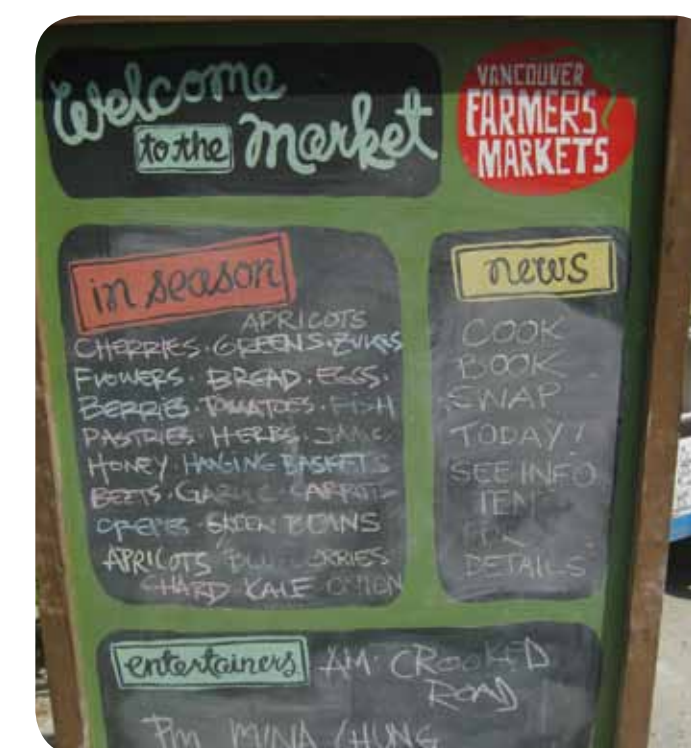 Welcome
to the market
VANCOUVER
FARMERS
MARKETS
in season
APRICOTS
CHERRIES · GREENS · ZUKES
FLOWERS · BREAD · EGGS ·
BERRIES · TOMATOES · FISH
PASTRIES · HERBS · JAMS
HONEY · HANGING BASKETS
BEETS · GARLIC · CARROTS
CREPES · GREEN BEANS
APRICOTS BLUEBERRIES
CHARD KALE ONION
news
COOK
BOOK
SWAP
TODAY!
SEE INFO
TENT
FOR
DETAILS
entertainers AM: CROOKED
ROAD
PM MINA / HUNG